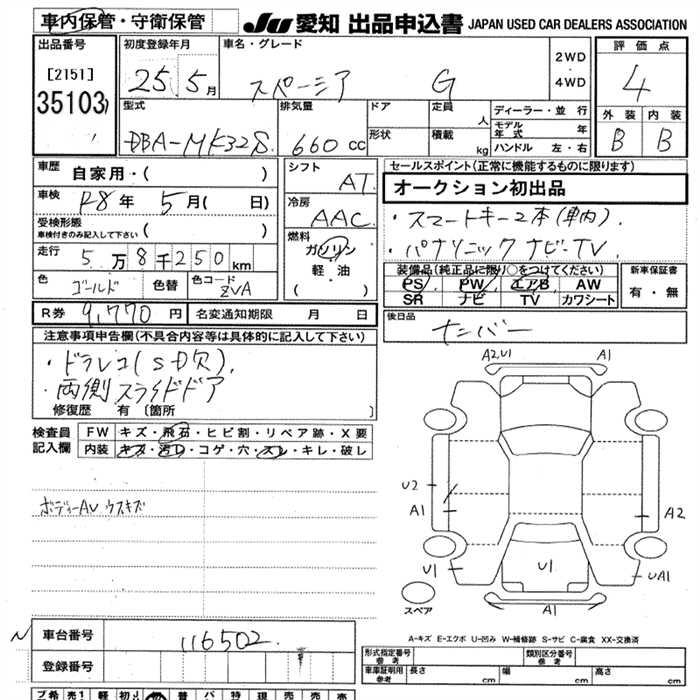 車内保管・守衛保管
JU 愛知 出品申込書 JAPAN USED CAR DEALERS ASSOCIATION
出品番号
[2151]
35103
初度登録年月
25 5月
車名・グレード
スペーシア G
2WD
・
4WD
評価点
4
外装 内装
B B
型式
DBA-MK32S
排気量
660 cc
ドア
形状
定員
人
積載
kg
ディーラー・並行
モデル年式 年
ハンドル 左・右
車歴
自家用・( )
車検 R8年 5月( 日)
受検形態
車検付きのみ記入して下さい ( )
走行
5万8千250km
色 ゴールド 色替 色コード ZVA
R券 9,770円 名変通知期限 月 日
シフト
AT
冷房
AAC
燃料
ガソリン
軽・油
( )
セールスポイント(正常に機能するものに限ります)
オークション初出品
・スマートキー2本(車内).
・パナソニックナビ-TV
装備品(純正品に限り○をつけてください)
PS PW エアB AW
SR ナビ TV カワシート
新車保証書
有・無
後日品
ナンバー
注意事項申告欄(不具合内容等は具体的に記入して下さい)
・ドラレコ(SD欠).
・両側スライドドア
修復歴 有〔箇所 〕
検査員
記入欄
FW キズ・飛石・ヒビ割・リペア跡・X要
内装 キズ・汚レ・コゲ・穴・スレ・キレ・破レ
ボディーAU ウスキズ
A2,U1 A1
U2
A1
A2
U1
U1
UA1
A1
スペア
A-キズ E-エクボ U-凹み W-補修跡 S-サビ C-腐食 XX-交換済
N 車台番号 116502
登録番号
形式指定番号
参考
類別区分番号
参考
車庫証明用
参考
長さ cm 幅 cm 高さ cm